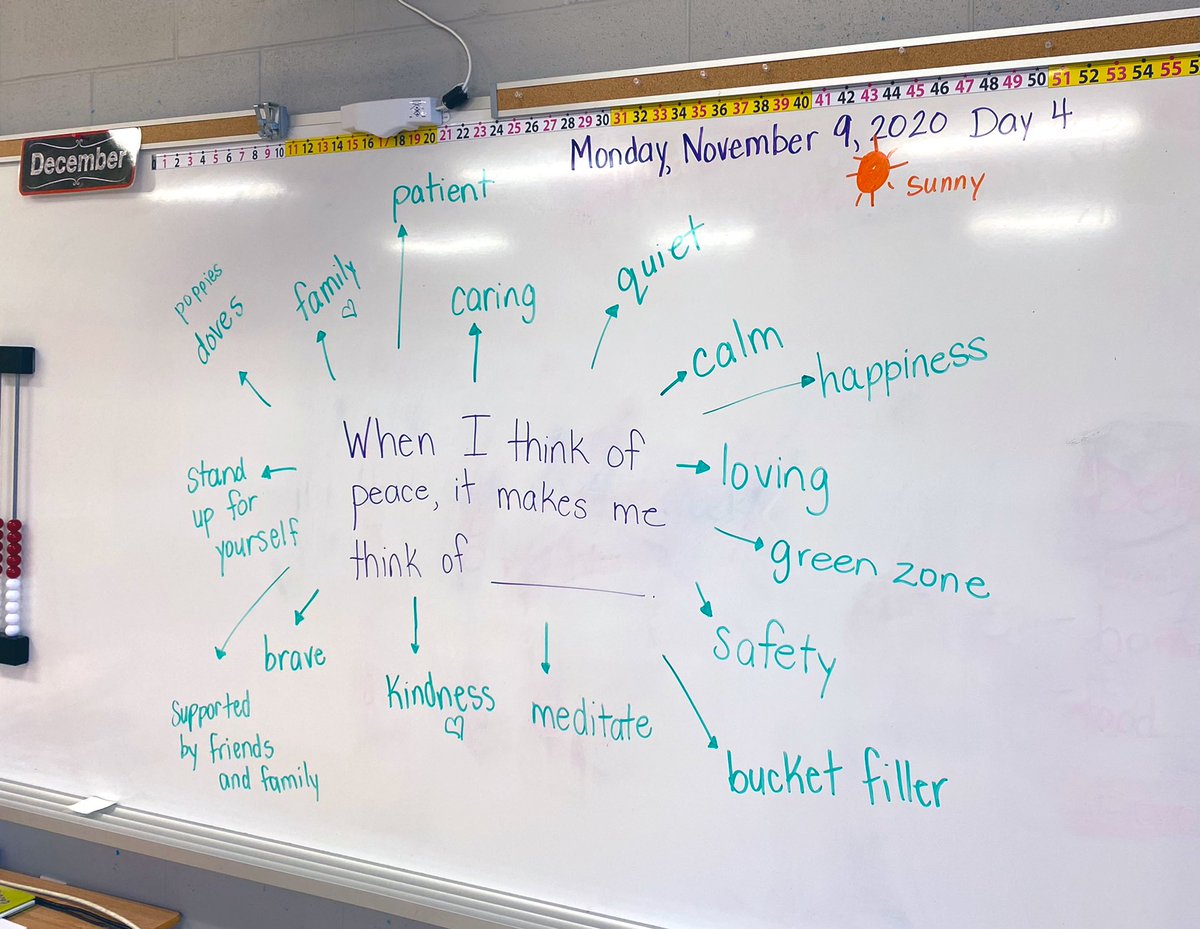 December
1 2 3 4 5 6 7 8 9 10 11 12 13 14 15 16 17 18 19 20 21 22 23 24 25 26 27 28 29 30 31 32 33 34 35 36 37 38 39 40 41 42 43 44 45 46 47 48 49 50 51 52 53 54 55
Monday, November 9, 2020 Day 4
sunny
patient
poppies
doves
family
caring
quiet
calm
happiness
When I think of
peace, it makes me
think of ________.
loving
green zone
safety
bucket filler
meditate
Kindness
brave
Stand
up for
yourself
Supported
by friends
and family